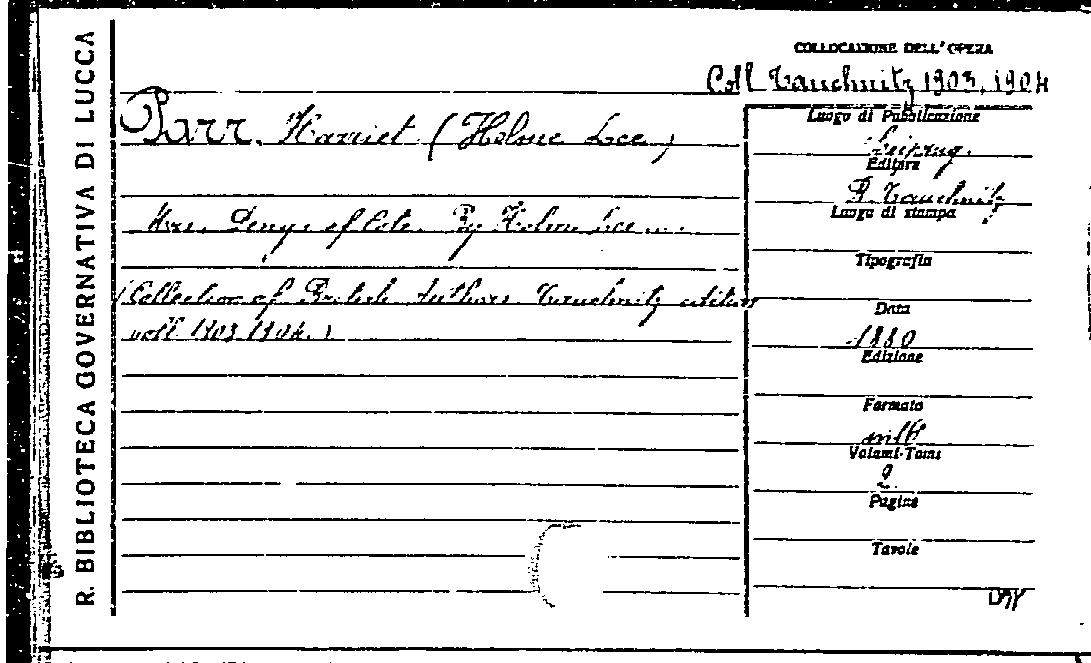 R. BIBLIOTECA GOVERNATIVA DI LUCCA
COLLOCAZIONE DELL'OPERA
Coll Tauchnitz 1903, 1904
Parr, Harriet (Holme Lee)
Mrs. Denys of Cote. By Holme Lee ...
(Collection of British Authors Tauchnitz edition
voll 1903 1904.)
Luogo di Pubblicazione
Leipzig.
Editore
B. Tauchnitz
Luogo di stampa
Tipografia
Data
1880
Edizione
Formato
Volumi-Tomi
2
Pagine
Tavole